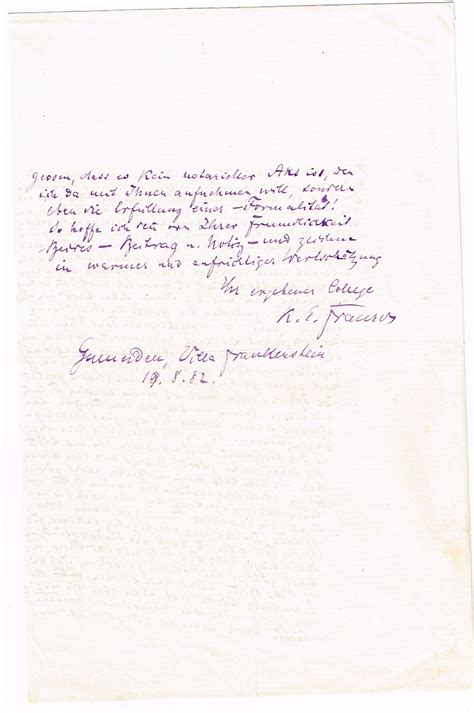 gessen, dass es kein notarieller Akt ist, den
ich da mit Ihnen aufnehmen will, sondern
eben die Erfüllung einer Formalität!
So hoffe ich denn von Ihrer Freundlichkeit
Beides – Beitrag u. Notiz – und zeichne
in warmer und aufrichtiger Wertschätzung
Ihr ergebener College
K. E. Franzos
Gmunden, Villa Frankenstein
19.8.82.